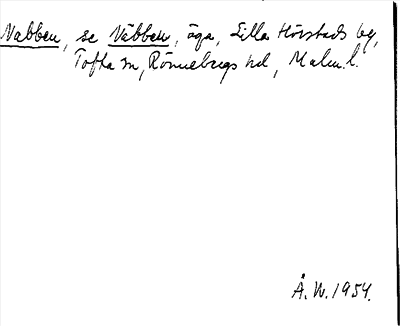 Nabben, se Näbben, äga, Lilla Hövstads by,
Tofta sn, Rönnebergs hd, Malm. l.
Å. W. 1954.